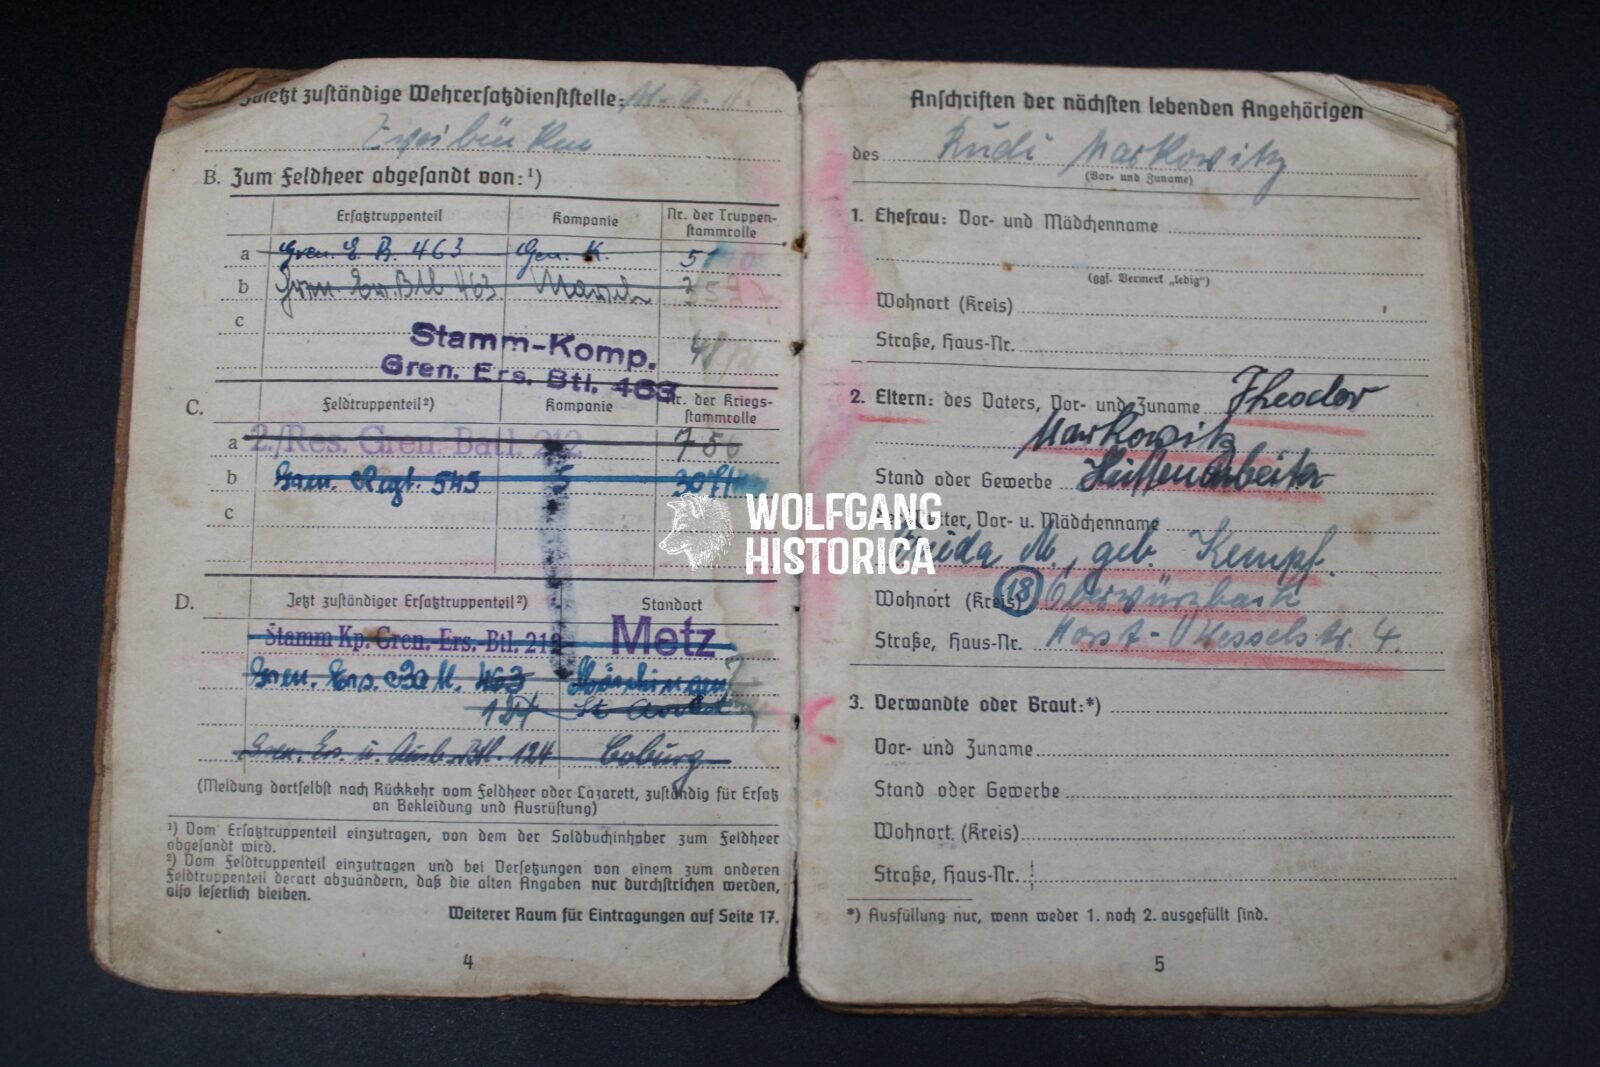 Zuletzt zuständige Wehrersatzdienststelle:
Zweibücken
B. Zum Feldheer abgesandt von: ¹)
Ersatztruppenteil Kompanie Nr. der Truppen-
stammrolle
a Gren. E. B. 463 Gen. K. 51
b Gren. Ers. Btl 463 Marsch 2
c
Stamm-Komp.
Gren. Ers. Btl. 463
C. Feldtruppenteil ²) Kompanie Nr. der Kriegs-
stammrolle
a 2./Res. Gren. Batl. 212 756
b Gren. Regt. 545 5
c
D. Jetzt zuständiger Ersatztruppenteil ²) Standort
Stamm Kp. Gren. Ers.-Btl. 212 Metz
Gren. Ers. Batl. 463
St. Avold
Gren. Ers. u. Ausb. Btl. 124 Coburg
(Meldung dortselbst nach Rückkehr vom Feldheer oder Lazarett, zuständig für Ersatz
an Bekleidung und Ausrüstung)
¹) Vom Ersatztruppenteil einzutragen, von dem der Soldbuchinhaber zum Feldheer
abgesandt wird.
²) Vom Feldtruppenteil einzutragen und bei Versetzungen von einem zum anderen
Feldtruppenteil derart abzuändern, daß die alten Angaben nur durchstrichen werden,
also leserlich bleiben.
Weiterer Raum für Eintragungen auf Seite 17.
4
Anschriften der nächsten lebenden Angehörigen
des Rudi Markowitz
(Vor- und Zuname)
1. Ehefrau: Vor- und Mädchenname
(ggf. Vermerk „ledig")
Wohnort (Kreis)
Straße, Haus-Nr.
2. Eltern: des Vaters, Vor- und Zuname Theodor
Markowitz
Stand oder Gewerbe Hüttenarbeiter
der Mutter, Vor- u. Mädchenname
M., geb. Kempf.
Wohnort (Kreis) 18 Oberwürzbach
Straße, Haus-Nr. Horst-Wesselstr. 4.
3. Verwandte oder Braut: *)
Vor- und Zuname
Stand oder Gewerbe
Wohnort (Kreis)
Straße, Haus-Nr.
*) Ausfüllung nur, wenn weder 1. noch 2. ausgefüllt sind.
5
WOLFGANG
HISTORICA